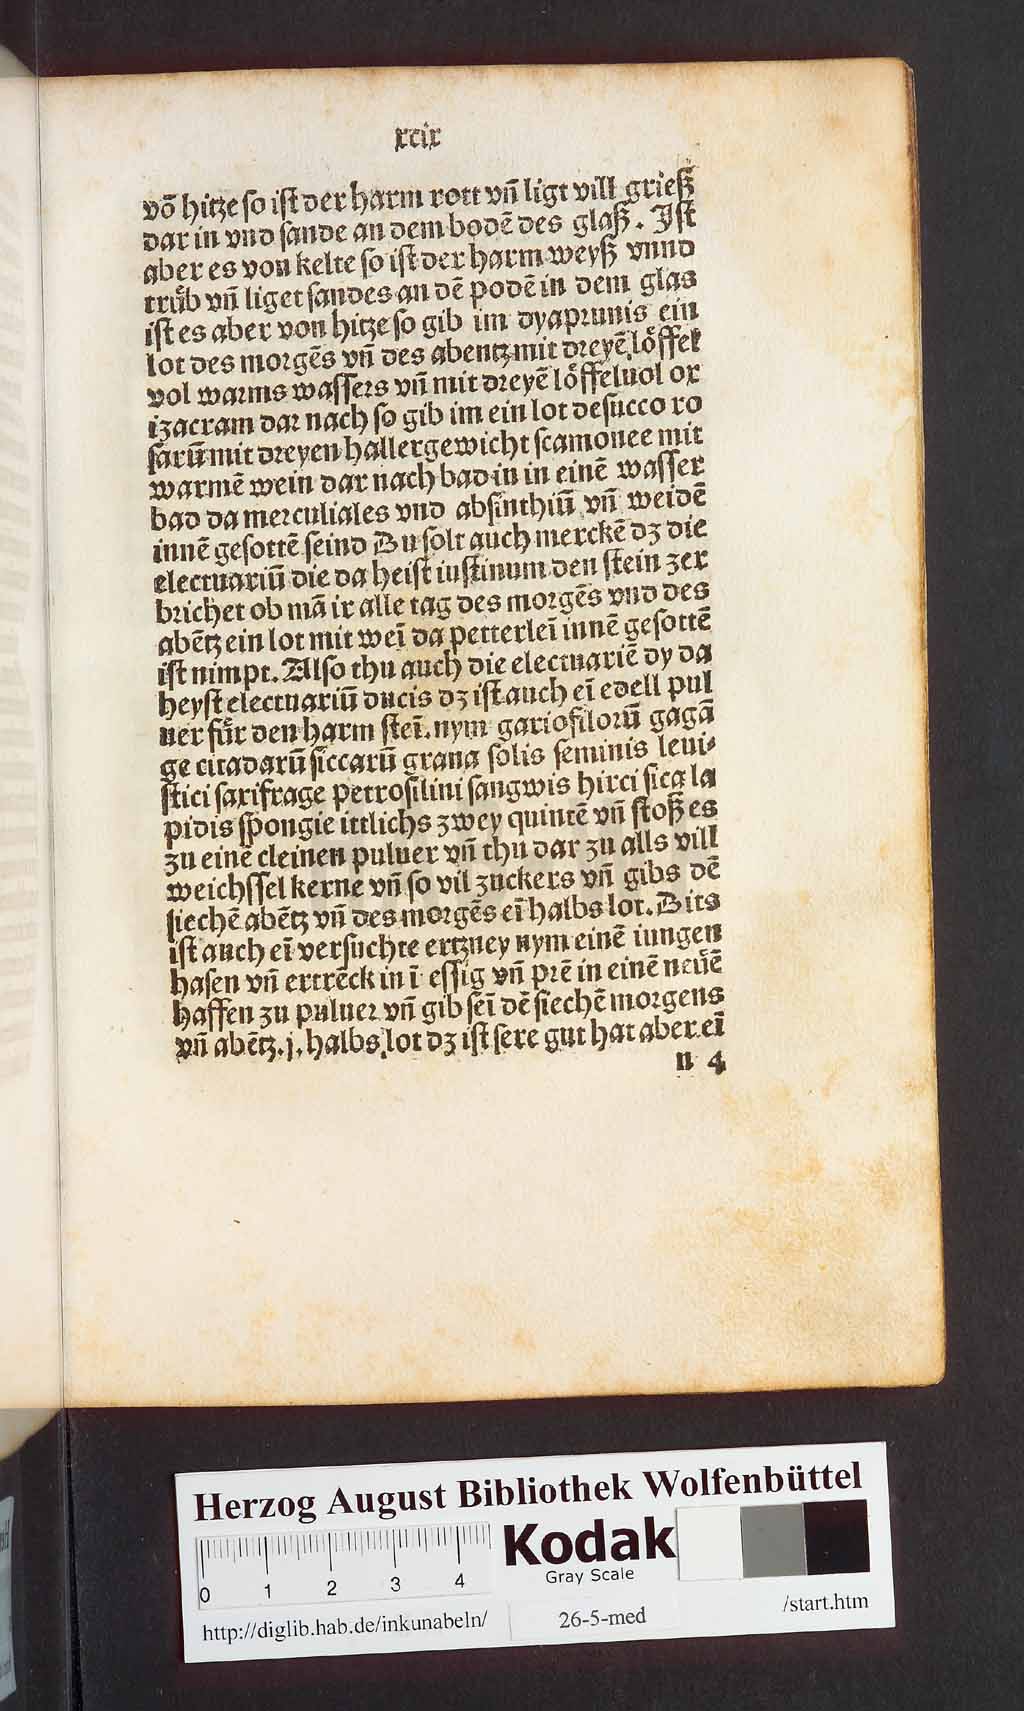 xcix
võ hitze so ist der harm rott vñ ligt vill grieß
dar in vnd sande an dem bodẽ des glaß. Ist
aber es von kelte so ist der harm weyß vnnd
truͤb vñ liget sandes an dẽ podẽ in dem glas
ist es aber von hitze so gib im dyaprunis ein
lot des morgẽs vñ des abentz mit dreyẽ loͤffel
vol warms wassers vñ mit dreyẽ loͤffeluol ox
izacram dar nach so gib im ein lot de succo ro
sarũ mit dreyen hallergewicht scamonee mit
warmẽ wein dar nach bad in in einẽ wasser
bad da merculiales vnd absinthiũ vñ weidẽ
innẽ gesottẽ seind Du solt auch merckẽ dz die
electuariũ die da heist iustinum den stein zer
brichet ob mã ir alle tag des morgẽs vnd des
abẽtz ein lot mit weĩ da petterleĩ innẽ gesottẽ
ist nimpt. Also thu auch die electuariẽ dy da
heyst electuariũ ducis dz ist auch eĩ edell pul
uer fuͤr den harm steĩ. nym gariofilorũ gagã
ge citadarũ siccarũ grana solis seminis leui⸗
stici saxifrage petrosilini sangwis hirci sica la
pidis spongie ittlichs zwey quintẽ vñ stoß es
zu einẽ cleinen puluer vñ thu dar zu alls vill
weichssel kerne vñ so vil zuckers vñ gibs dẽ
siechẽ abẽtz vñ des morgẽs eĩ halbs lot. Dits
ist auch eĩ versuchte ertzney nym einẽ iungen
hasen vñ ertrẽck in ĩ essig vñ prẽ in einẽ neuͤẽ
haffen zu puluer vñ gib seĩ dẽ siechẽ morgens
vñ abẽtz .j. halbs lot dz ist sere gut hat aber eĩ
n 4
Herzog August Bibliothek Wolfenbüttel
0 1 2 3 4
Kodak
Gray Scale
http://diglib.hab.de/inkunabeln/
26-5-med
/start.htm